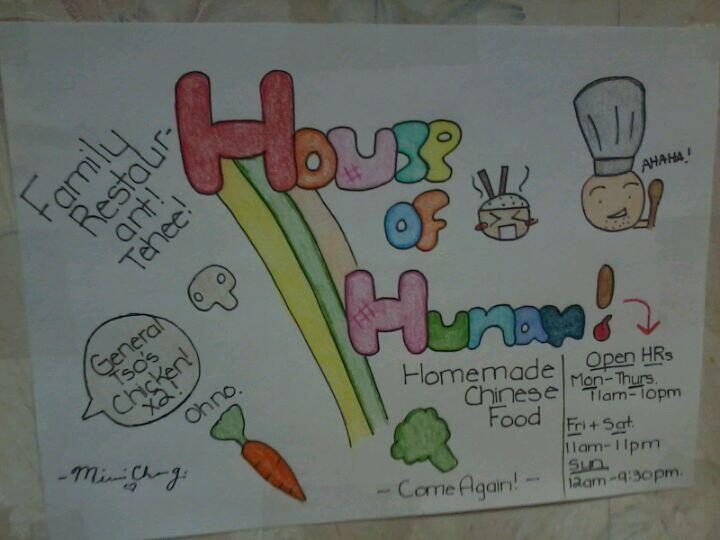 Family
Restaur-
ant!
Tehee!
House
of
Hunan!
AHAHA!
General
Tso's
Chicken!
x2!
Oh no.
Homemade
Chinese
Food
Open HRs
Mon-Thurs.
11am-10pm
Fri + Sat.
11am-11pm
Sun
12am-9:30pm.
- Come Again! -